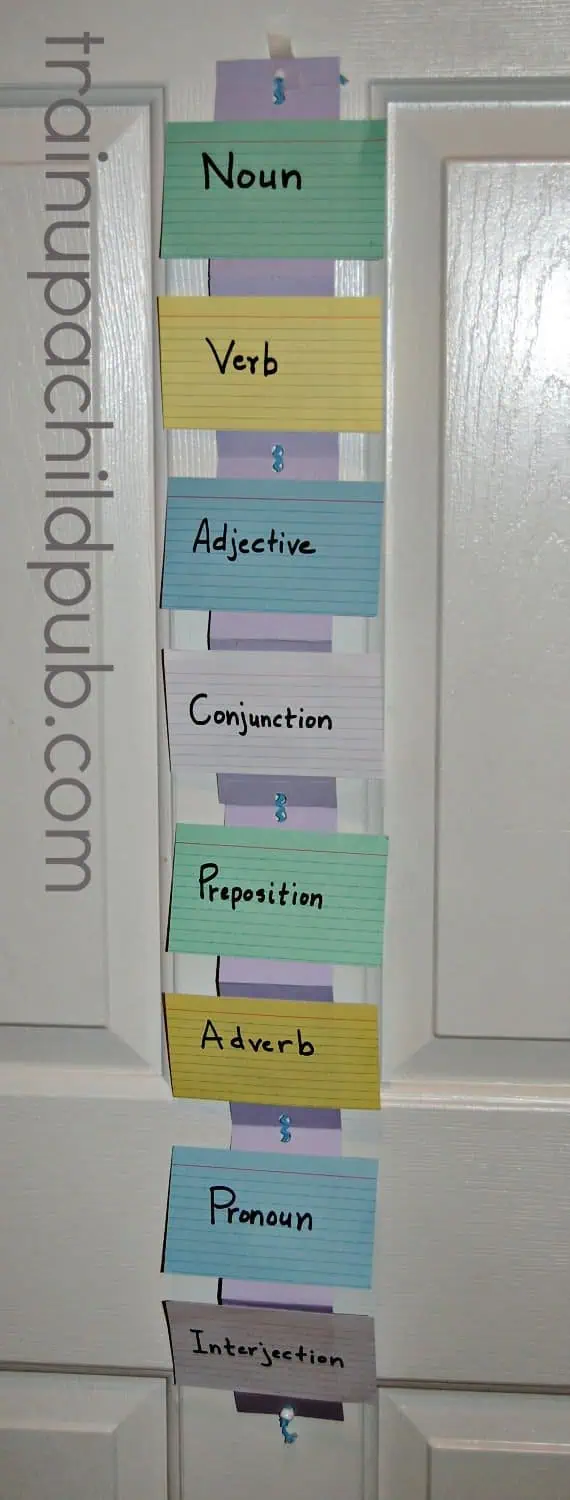 trainupachildpub.com
Noun
Verb
Adjective
Conjunction
Preposition
Adverb
Pronoun
Interjection